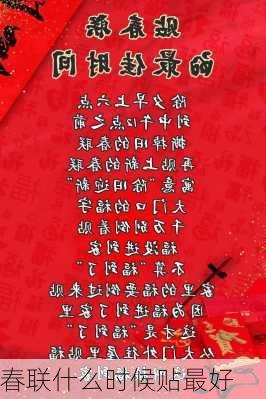 贴春联
的最佳时间
除夕早上六点
到中午12点之前
撕掉旧的春联
再贴上新的春联
寓意"除旧迎新"
大门口的福字
千万别倒着贴
福没进家
不算"福到了"
家里的福要倒过来贴
因为福进到了家里
这才是"福到了"
从大门外往屋里贴
春联什么时候贴最好